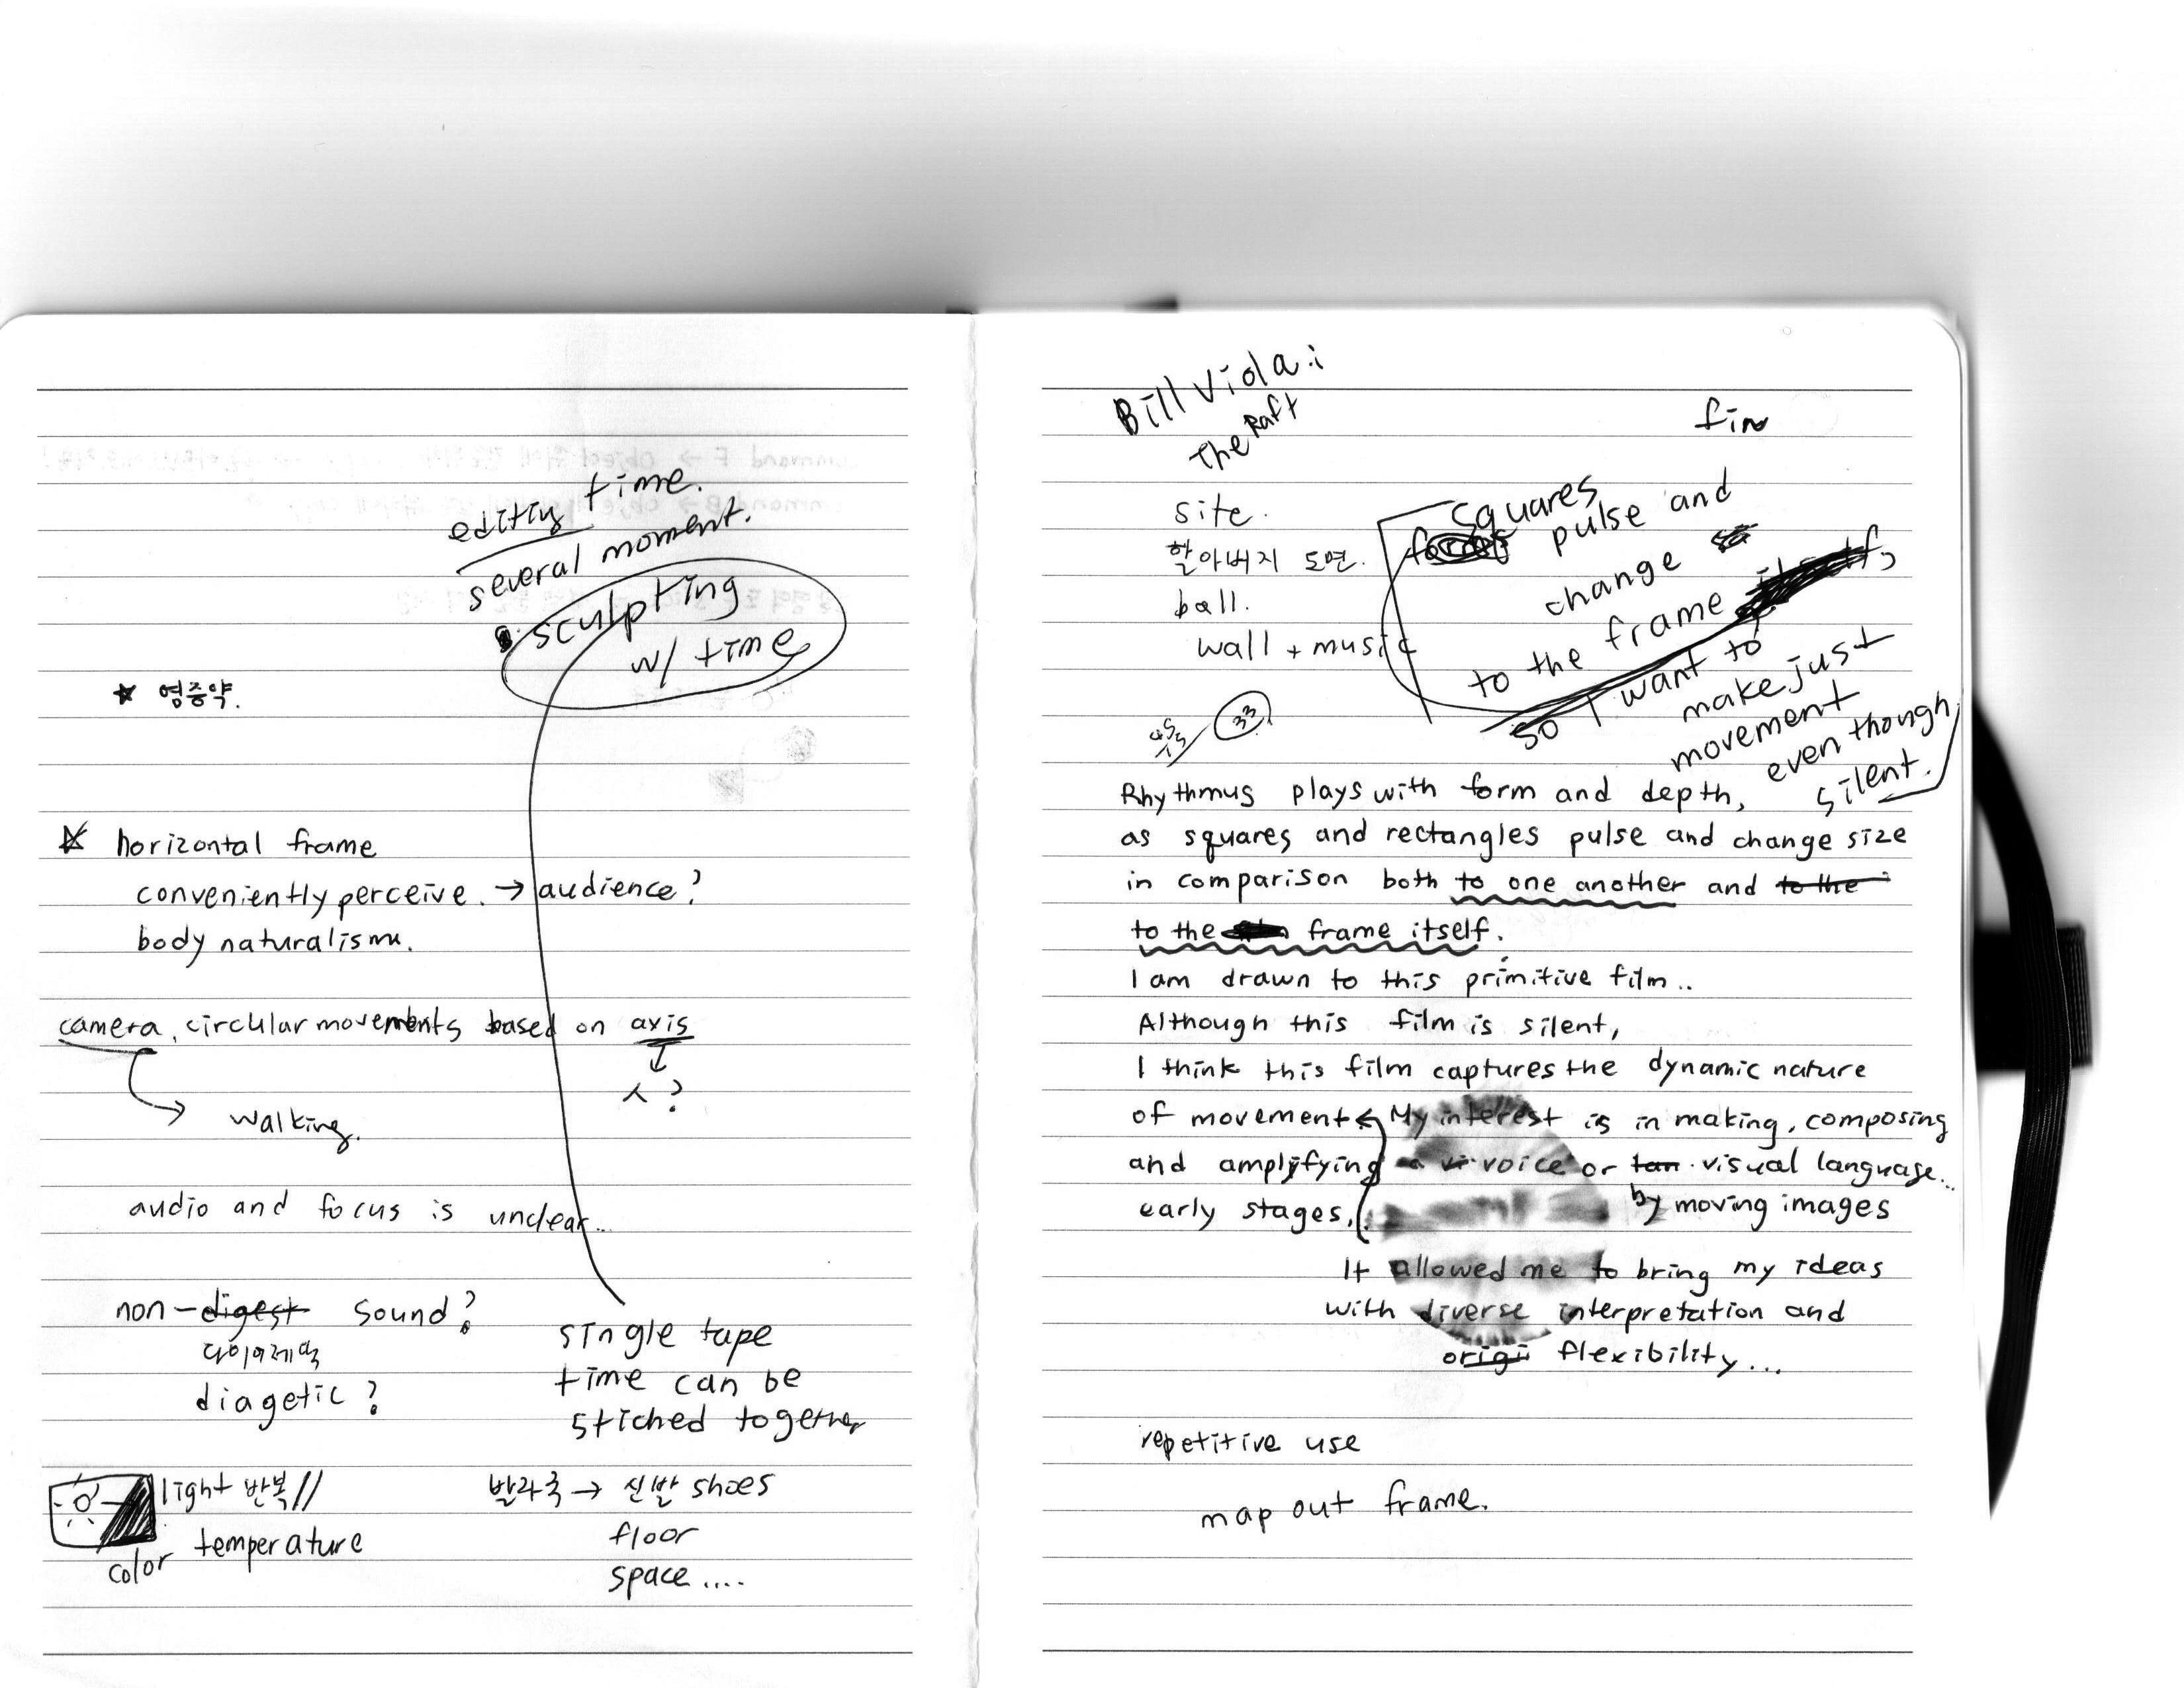 editing time.
several moment.
sculpting
w/ time
★ 영종약.
☆ horizontal frame
conveniently perceive. → audience?
body naturalism.
camera, circular movements based on axis
↓
ㅅ?
walking.
audio and focus is unclear...
non-digest sound?
다이어제틱
diagetic?
single tape
time can be
stiched together
light 반복//
color temperature
발자국 → 신발 shoes
floor
space....
Bill Viola:
The Raft
fin
site.
할아버지 도면.
ball.
wall + music
squares
pulse and
change
to the frame itself,
so I want to
make just
movement
even though
silent.
33
Rhythmus plays with form and depth,
as squares and rectangles pulse and change size
in comparison both to one another and to the
to the frame itself.
I am drawn to this primitive film..
Although this film is silent,
I think this film captures the dynamic nature
of movement ← My interest is in making, composing
and amplyfying a voice or visual language...
early stages, by moving images
It allowed me to bring my ideas
with diverse interpretation and
origi flexibility...
repetitive use
map out frame.